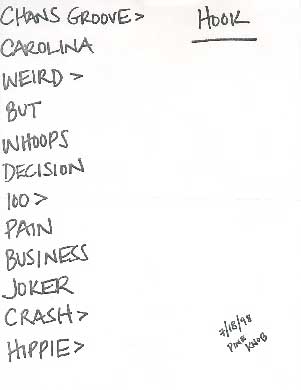 CHANS GROOVE >
HOOK
CAROLINA
WEIRD >
BUT
WHOOPS
DECISION
100 >
PAIN
BUSINESS
JOKER
CRASH >
HIPPIE >
7/18/98
PINE
KNOB